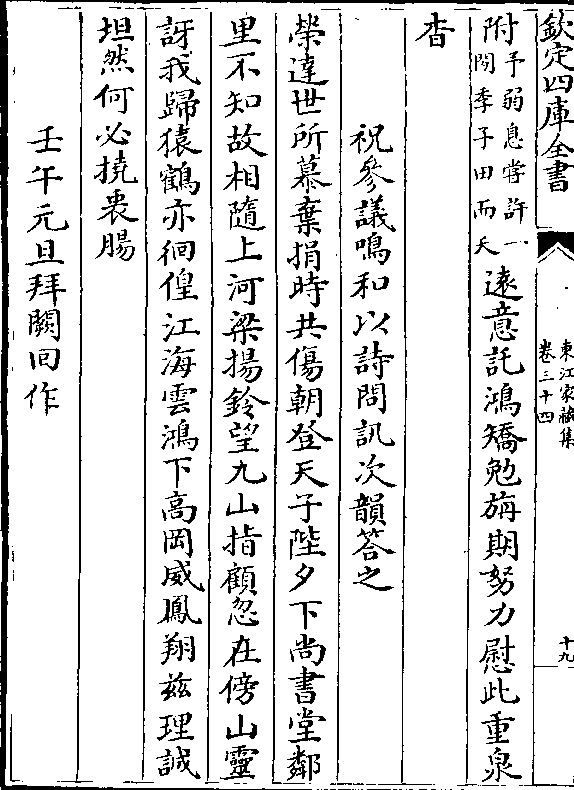 欽定四庫全書
東江家藏集
卷三十四
十九
附予弱息嘗許一閔季子田而夭遠意託鴻矯勉旃期努力慰此重泉
杳
祝參議鳴和以詩問訊次韻答之
榮達世所慕棄捐時共傷朝登天子陛夕下尚書堂鄰
里不知故相隨上河梁揚鈴望九山指顧忽在傍山靈
訝我歸猿鶴亦徊徨江海雲鴻下高岡威鳳翔兹理誠
坦然何必撓衷腸
壬午元旦拜闕回作